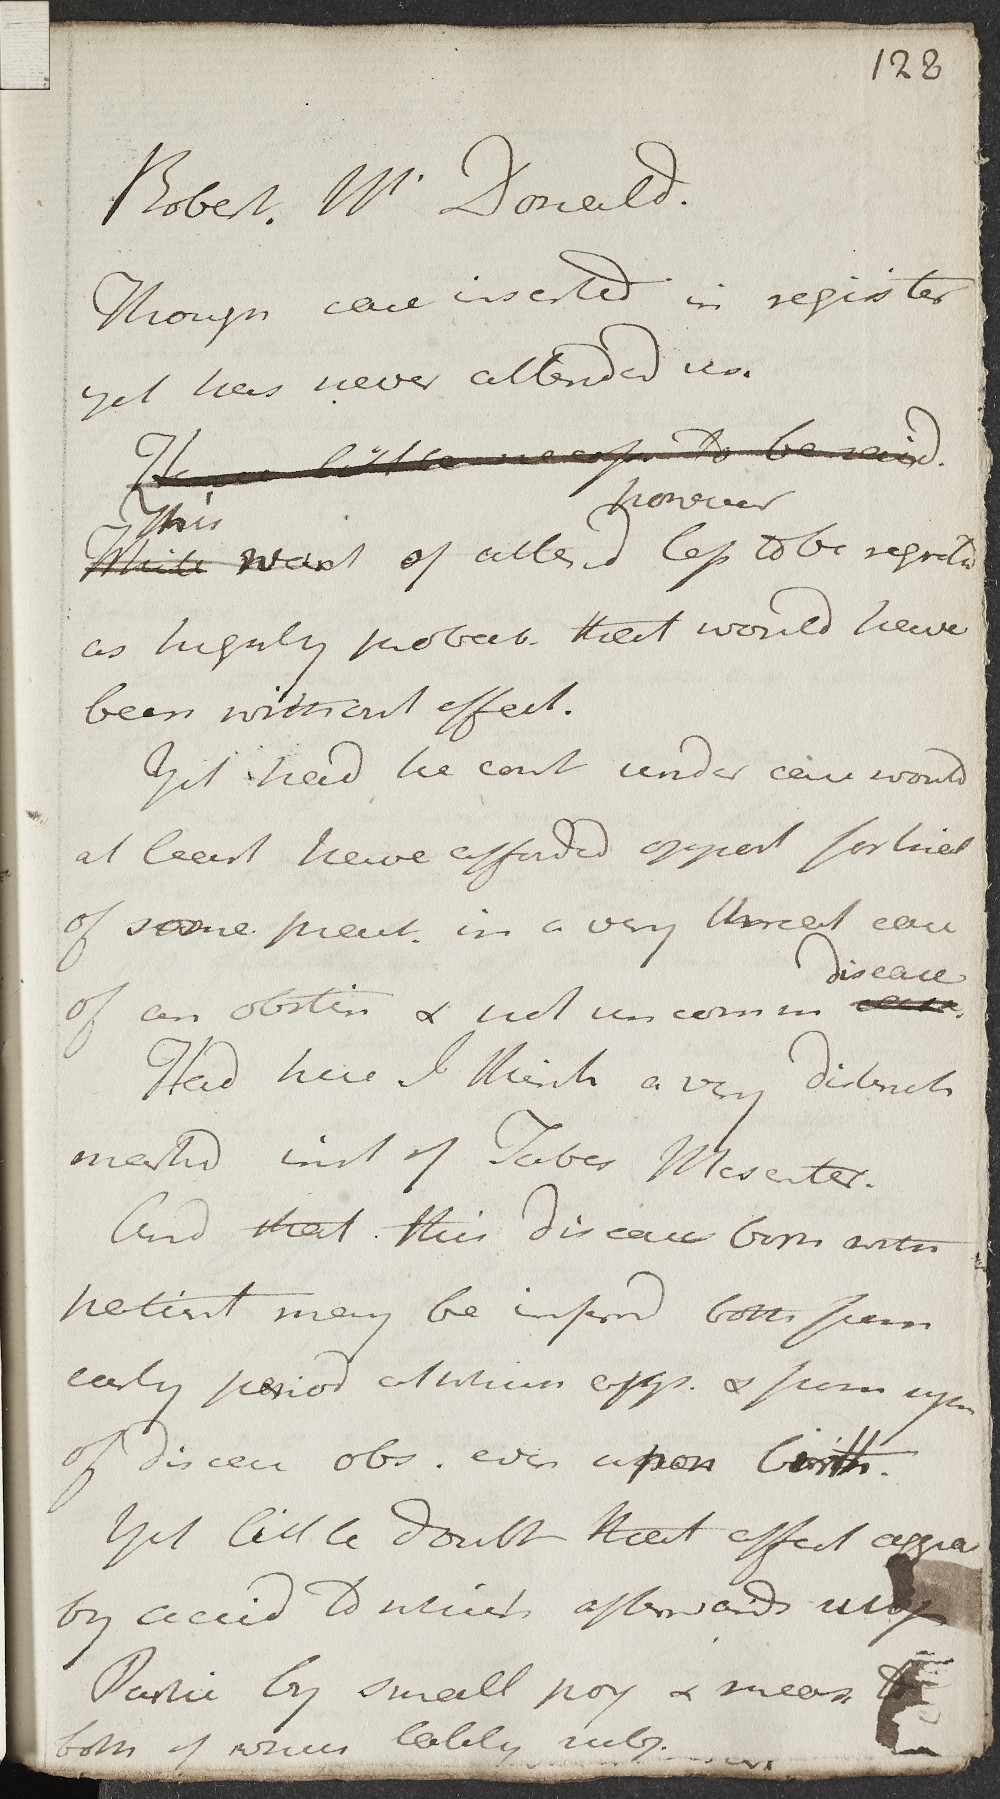 128
Robert. Mc Donald.
Though case inserted in register
yet has never attended us.
Hence little necess. to be said.
This however
While want of attend less to be regretd
as highly probab. that would have
been without effect.
Yet had he cont under care would
at least have afforded opport for trial
of some pract. in a very threat case
of an obstin & not uncomm disease
case.
Had here I think a very distinct
markd inst of Tabes Mesenter.
And that this disease born with
patient may be inferd both from
early period at which app. & from sym
of disease obs. even upon birth.
Yet little doubt that effect aggra
by accid to which afterwards subj
Partic by small pox & meas
both of which lately subj.